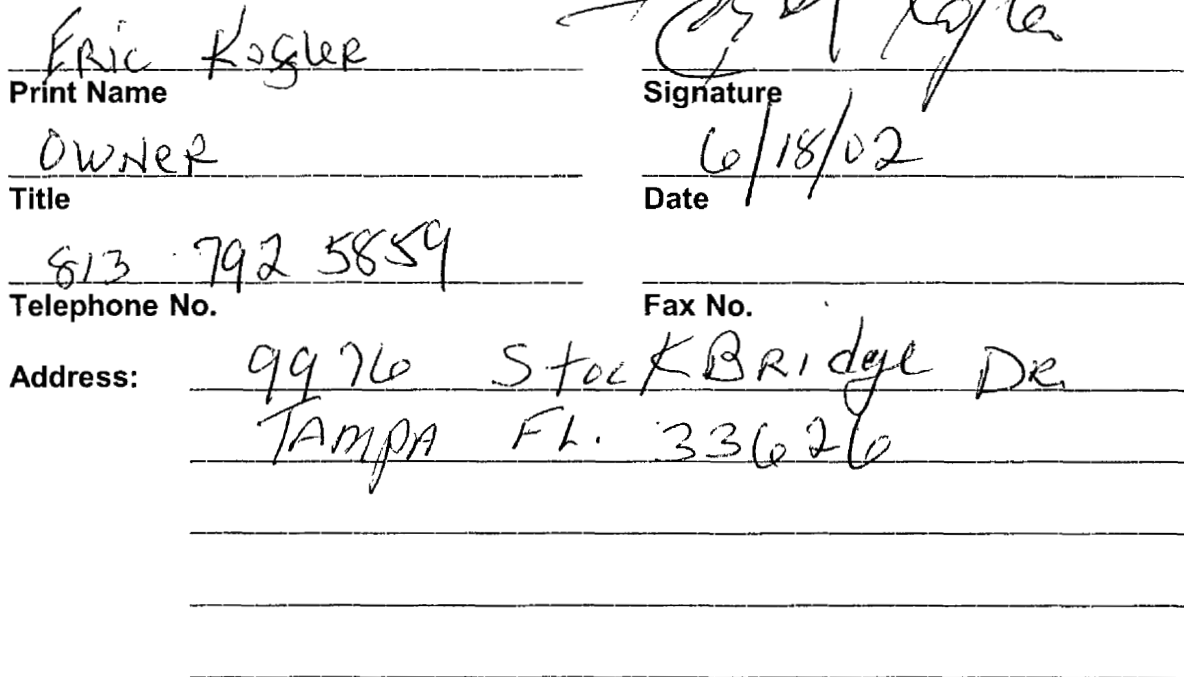 Eric Kogler
Print Name Signature
OWNER 6/18/02
Title Date
813 792 5859
Telephone No. Fax No.
Address: 9976 StockBridge DR.
TAMPA FL. 33626